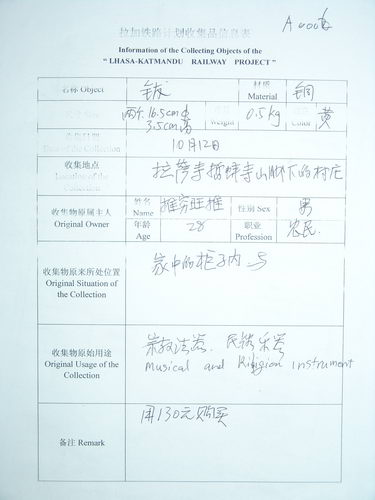 A006
拉加铁路计划收集品信息表
Information of the Collecting Objects of the
“ LHASA-KATMANDU RAILWAY PROJECT ”
名称 Object 钹 材质 Material 铜
Size 两个 16.5cm 3.5cm高 Weight 0.5kg Color 黄
10月12日
收集地点 拉萨 寺山脚下的村庄
Location of the Collection
收集物原属主人 Original Owner 姓名 Name 性别 Sex 男
年龄 Age 28 职业 Profession 农民.
收集物原来所处位置 家中的柜子内
Original Situation of the Collection
收集物原始用途 宗教法器、民族乐器
Original Usage of the Collection Musical and Religion instrument
备注 Remark 用130元购买